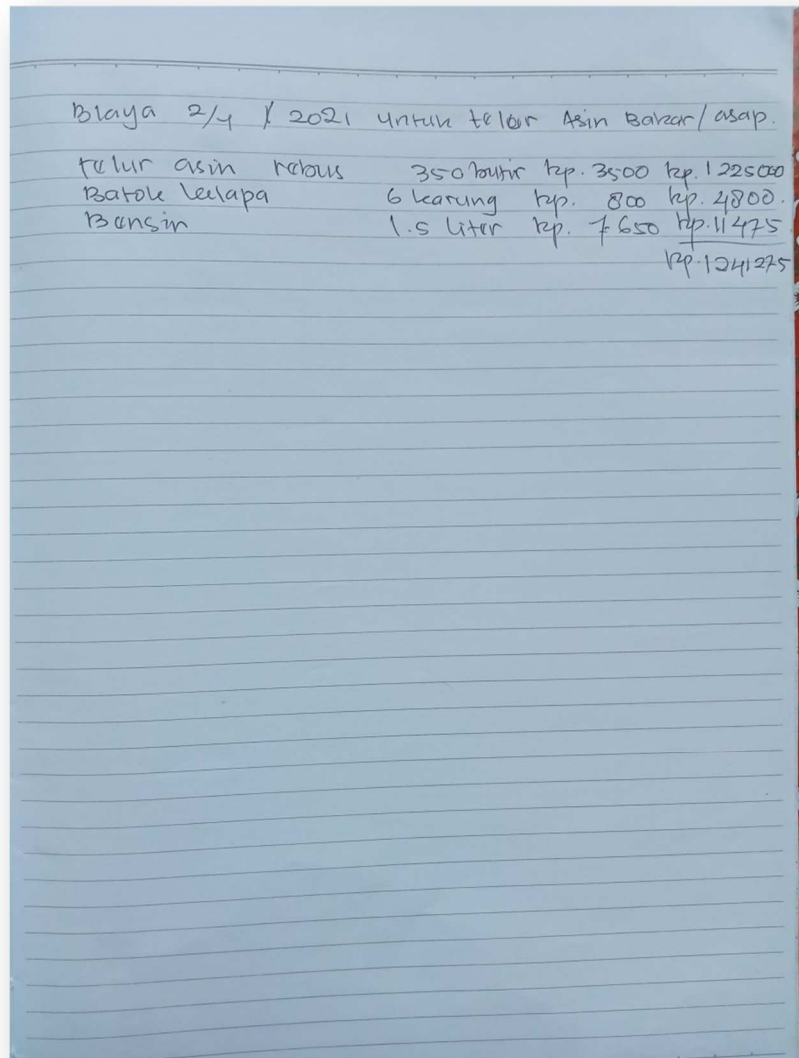 Biaya 2/4 2021 untuk telor Asin Bakar/asap.
telur asin rebus 350 butir Rp. 3500 Rp. 1225000
Batok kelapa 6 karung Rp. 800 Rp. 4800.
Bensin 1.5 liter Rp. 7650 Rp. 11475
Rp. 1241275